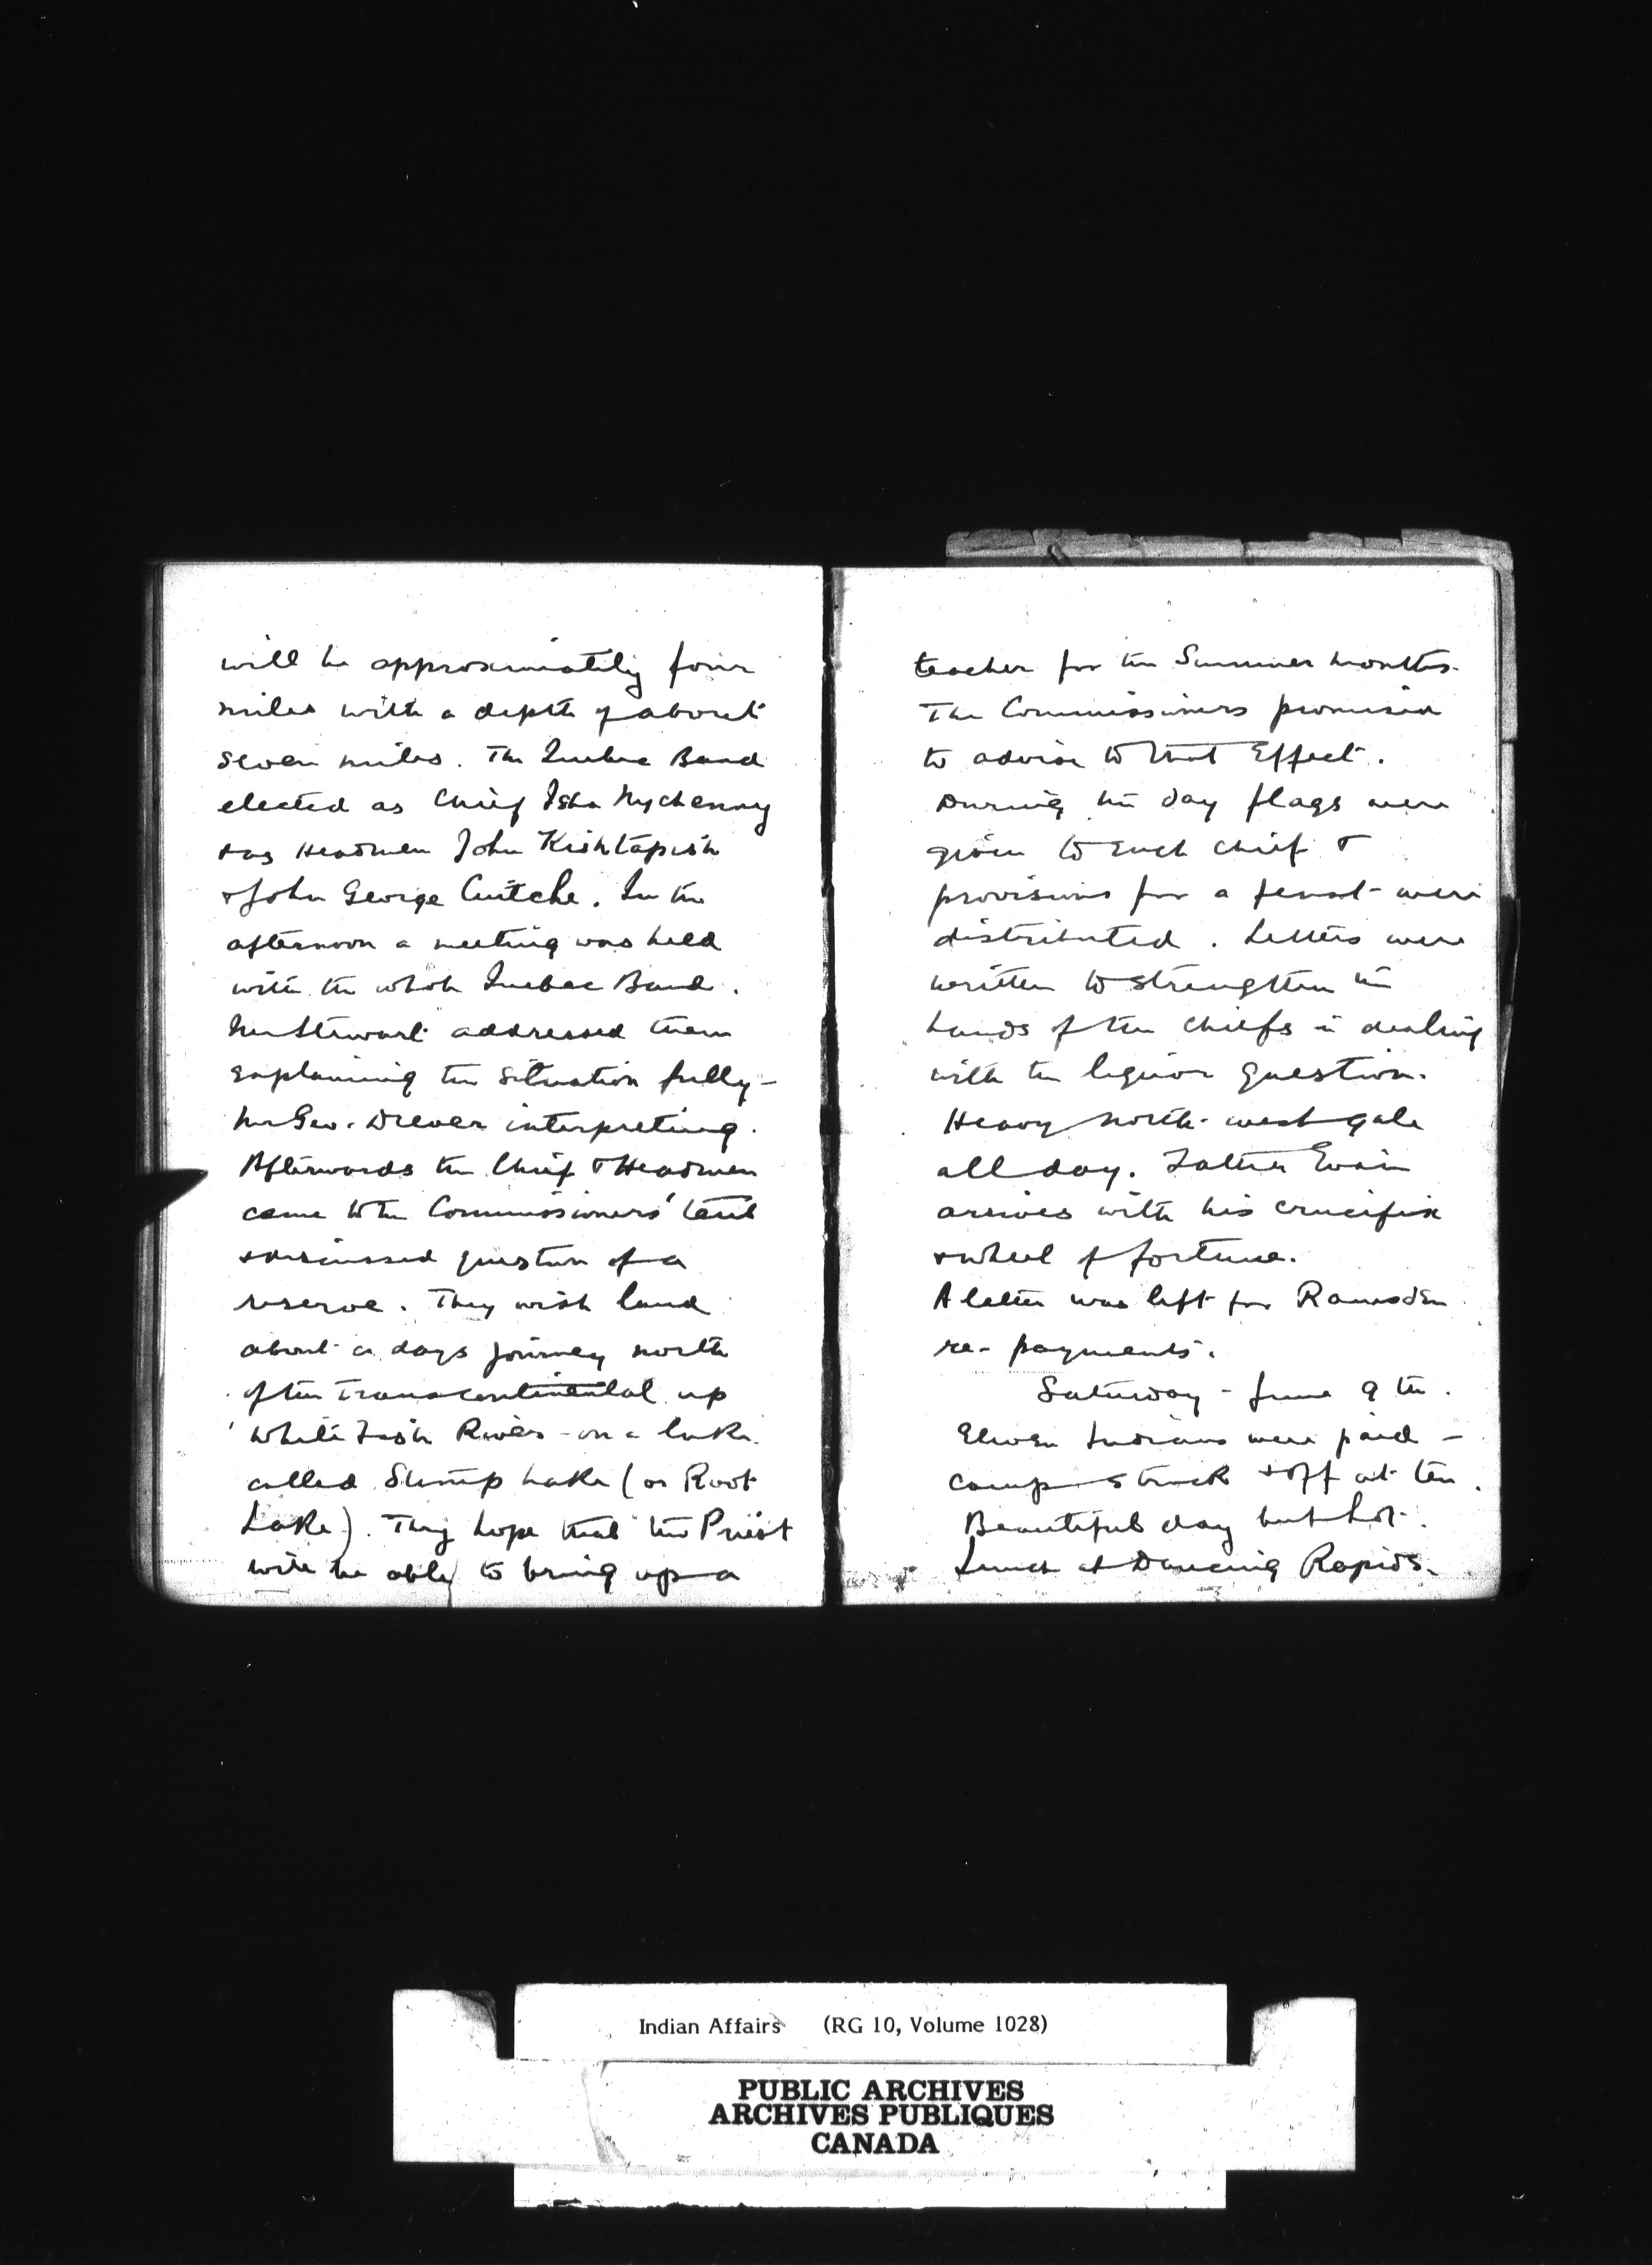 will be approximately four
miles with a depth of about
seven miles. The Quebec Band
elected as Chief John Mychenny
& as Headmen John Kishtapish
& John George Cuitche. In the
afternoon a meeting was held
with the whole Quebec Band.
Mr Stewart addressed them
explaining the situation fully –
Mr Geo. Drever interpreting.
Afterwards the Chief & Headmen
came to the Commissioners' tent
& discussed question of a
reserve. They wish land
about a days journey north
of the Transcontinental up
White Fish River – on a lake
called Stump Lake (or Root
Lake). They hope that the Priest
will be able to bring up a
teacher for the Summer months.
The Commissioners promised
to advise to that Effect.
During the day flags were
given to Each Chief &
provisions for a feast were
distributed. Letters were
written to strengthen the
hands of the Chiefs in dealing
with the liquor question.
Heavy north-west gale
all day. Father Evain
arrives with his crucifix
& wheel of fortune.
A letter was left for Ramsden
re- payments.
Saturday – June 9th.
Eleven Indians were paid –
camp struck & off at ten.
Beautiful day but hot.
Lunch at Dancing Rapids.
Indian Affairs (RG 10, Volume 1028)
PUBLIC ARCHIVES
ARCHIVES PUBLIQUES
CANADA